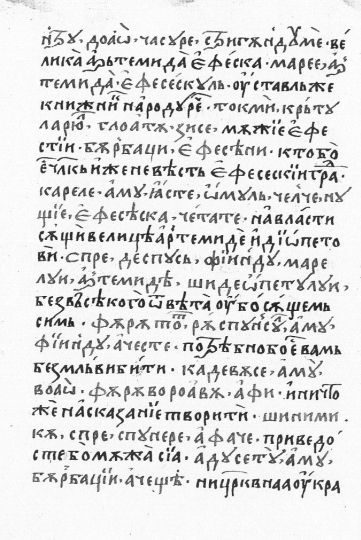 і҆нтрꙋ, доаѡ, часꙋре, стригѫндꙋме· ве
лика артемида ефеска· марее, ар
темида, ефесескꙋль· оу҆ставлъже
книжнїи народꙋре· токми, крътꙋ
ларю, глоатѧ, зисе, мѫжїе ефе
стїи· бѫрбаци, ефесѣни· кто бо
е҆члкъ и҆же не вѣсть ефесескїи гра·
кареле· амꙋ, ꙗсте, ѡмꙋль, челче, нꙋ
щїе, ефесѣска, четате· на власти
сѧщи велицѣ артемидѣ и дїѡпето
ви· спре, деспꙋсь, фїиндꙋ, маре
лꙋи, артемидѣ, ши деѡпетꙋлꙋи,
без въсѣкого ѿвѣта оу҆бо сѧщемь
симь· фѫрѫ то, рѫспꙋнсꙋ, амꙋ,
фїиндꙋ, ачесте· потрѣбно бо е вамь
безмлъви быти· кадевѫсе, амꙋ,
воаѡ· фѫрѫ вороавѫ, а фи· и ничто
же на сказанїе творити· ши ними
кѫ, спре, спꙋнере, а фаче· приведо
сте бо мѫжа сїа· адꙋсетꙋ, амꙋ,
бѫрбацїи, ачещѣ· ни црквнаа оу҆кра